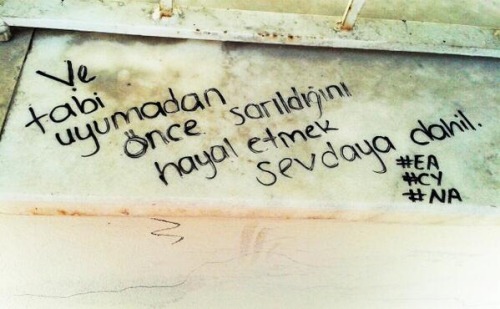 Ve
tabi
uyumadan
önce sarıldığını
hayal etmek
sevdaya dahil.
#EA
#CY
#NA